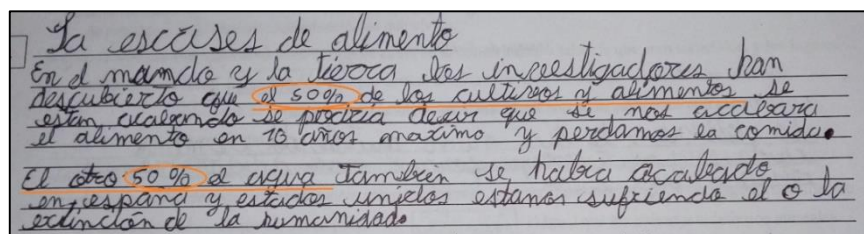 La escases de alimento
En el mundo y la tierra los investigadores han
descubierto que el 50% de los cultivos y alimentos se
estan acabando se prodria decir que si nos acabara
el alimento en 10 años maximo y perdamos la comida.
El otro 50% el agua tambien se habia acabado
en españa y estados unidos estamos sufriendo el o la
extinción de la humanidad.